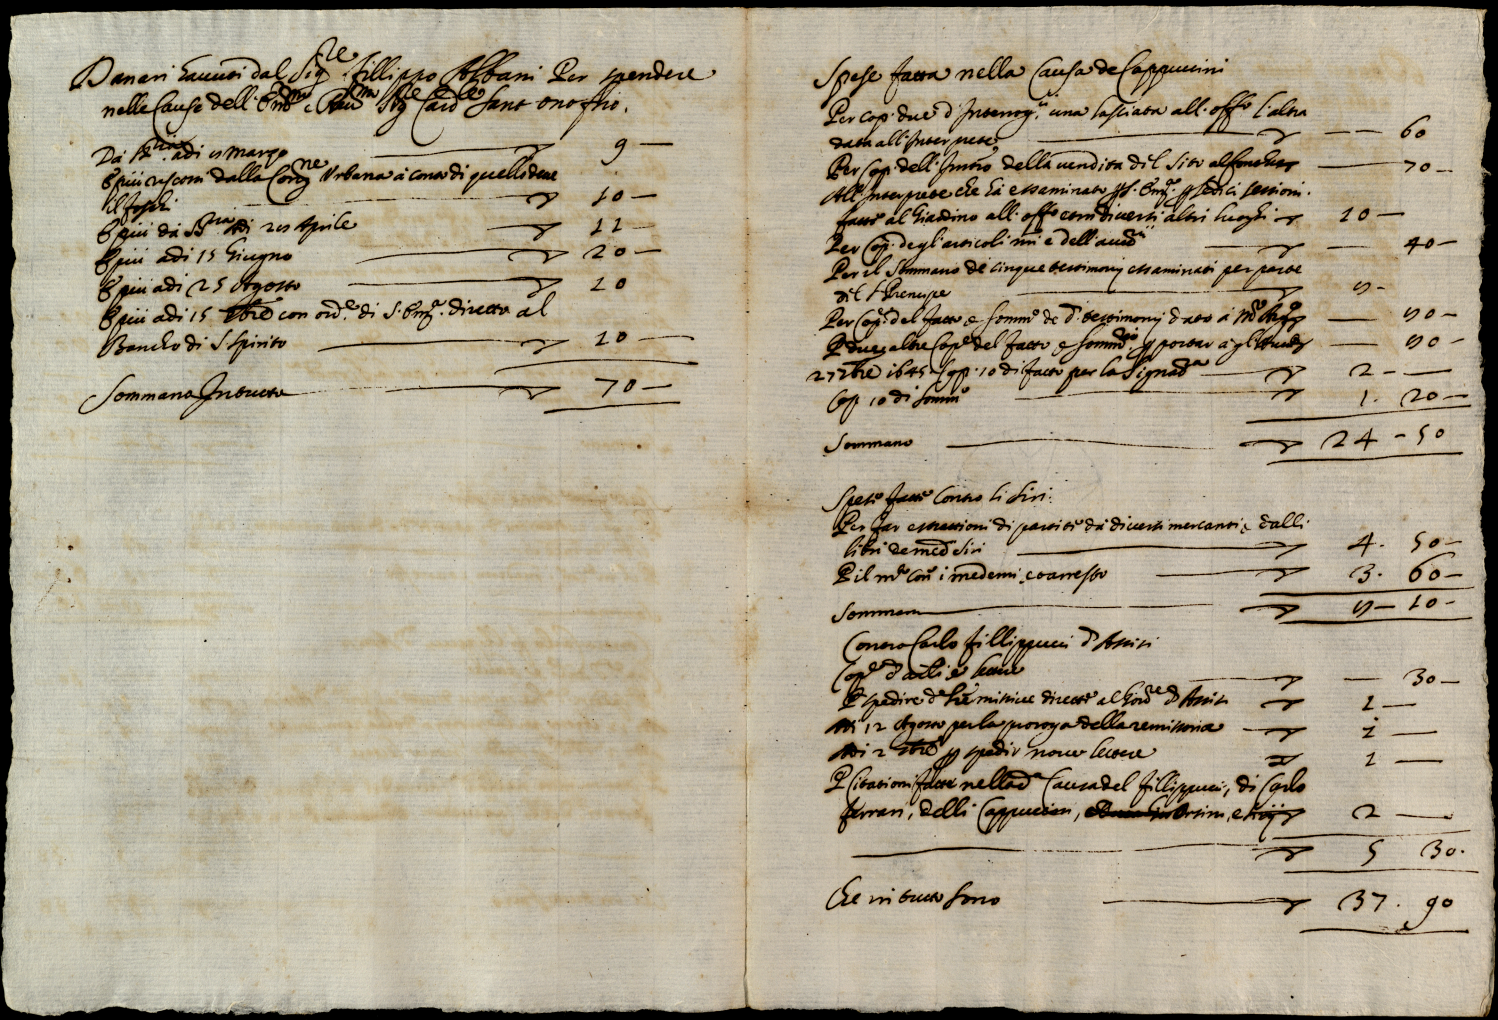 Danari hauuti dal Sig.re fillippo Albani Per spendere
nelle Cause dell' Em.mo e Reu.mo Sig.r Card.le Sant' onofrio.
Da p.ma adi marzo 9 —
E piu riscossi dalla Cong.ne Vrbana à conto di quello deue
il 10 —
E piu da adi Aprile 11 —
E piu adi 15 Giugno 20 —
E piu adi 25 Agosto 10
E piu adi 15 con ord.e di S. Em.za diretto al
Bancho di S. Spirito 10 —
Sommana In tutto 70 —
Spese fatte nella Causa de Cappuccini
Per cop. due d' Interrog.ii una lasciata all' off.o l'altra
data all' Interprete 60
Per Cop. dell' Instro della uendita del Sito 70 —
All' Interprete che hà essaminato p S. Em.za p sedici sessioni
fatte al Giardino all' off.o et in diuersi altri luoghi 10 —
Per Cop. degli articoli mi e dell' 40 —
Per il Sommario de cinque testimonij essaminati per parte
del S. Prencipe
Per Cop. del fatto e Somm.o de d. testimonij dato à 50 —
P due altre Cop.e del fatto e Somm.o p portar à gli 50 —
27 7bre 1645 Cop. 10 di fatto per la Signat.a 2 —
Cop. 10 di Somm.o 1. 20 —
Sommano 24 — 50
Spese fatte Contro li Siri
Per far estrattioni di partite da diuersi mercanti e dalli
libri de med. Siri 4. 50 —
P il m.to con.o i medemi 3. 60 —
Sommano 10 —
Contro Carlo fillippucci d' Assisi
Cop.e d' atti e lettere 30 —
P spedire d.e l.re missiue dirette al Gou.re d' Assisi 1 —
Adi 12 Agosto per la proroga della remissoria 1 —
Adi 2 p spedir noue lettere 1 —
P Citationi fatte nella d.a Causa del fillippucci, di Carlo
ferrari, delli Cappuccini, Orsini, e Siri 2 —
5 30.
Che in tutto sono 37. 90